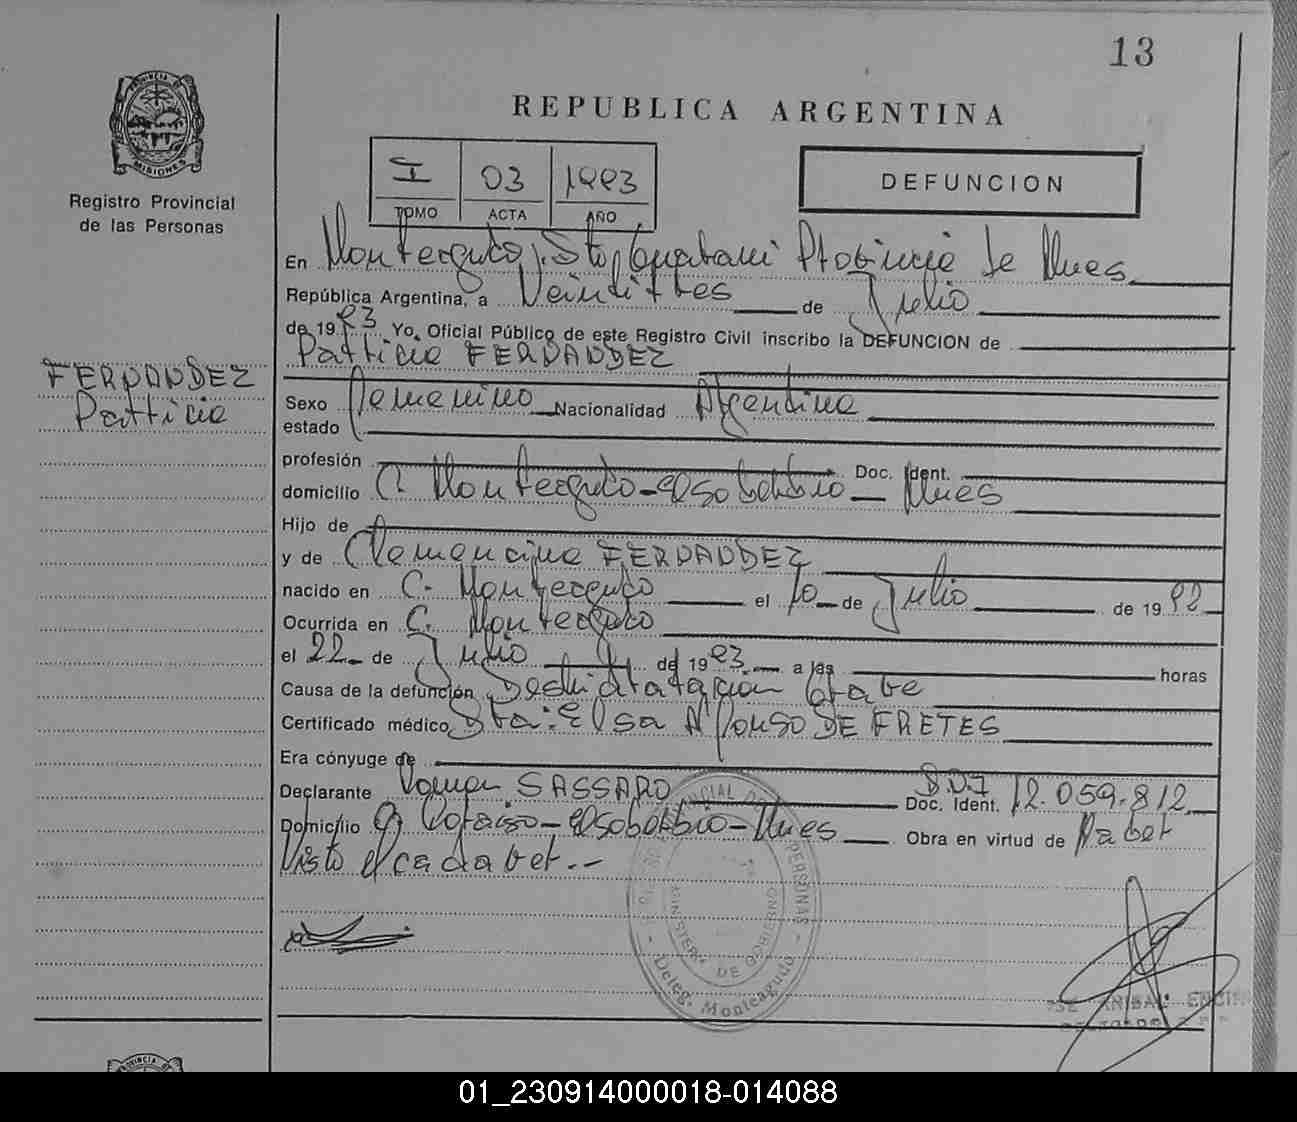 13
PROVINCIA DE
MISIONES
Registro Provincial
de las Personas
REPUBLICA ARGENTINA
I 03 1993
TOMO ACTA AÑO
DEFUNCION
En Monteagudo, Gto Guarani Provincia de Mnes
República Argentina, a Veintitres de Julio
de 1993 Yo, Oficial Público de este Registro Civil inscribo la DEFUNCION de
Patricia FERNANDEZ
FERNANDEZ
Patricia
Sexo Femenino Nacionalidad Argentina
estado
profesión Doc. Ident.
domicilio C. Monteagudo - El soberbio - Mnes
Hijo de
y de Clemencina FERNANDEZ
nacido en C. Monteagudo el 10 de Julio de 1992
Ocurrida en C. Monteagudo
el 22 de Julio de 1993 a las horas
Causa de la defunción Deshidratación Grave
Certificado médico Dra: Elsa Alfonso DE FRETES
Era cónyuge de
Declarante SASSARO D.N.I
Doc. Ident. 12.059.812
Domicilio C. Paraiso - El soberbio - Mnes Obra en virtud de Haber
Visto el cadaver.-
PERSONAS
MINISTERIO DE GOBIERNO
Deleg. Monteagudo
ANIBAL
01_230914000018-014088